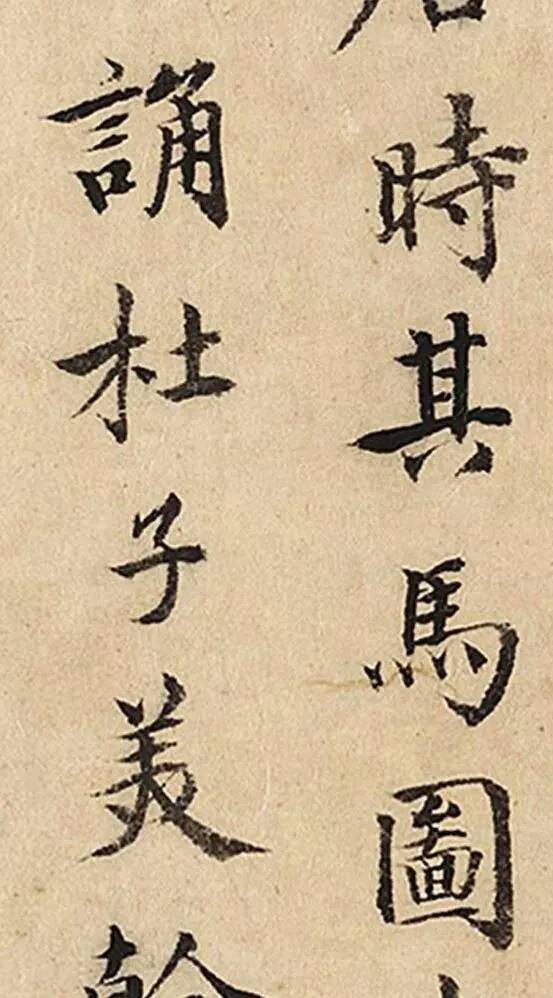 時其馬圖
誦杜子美